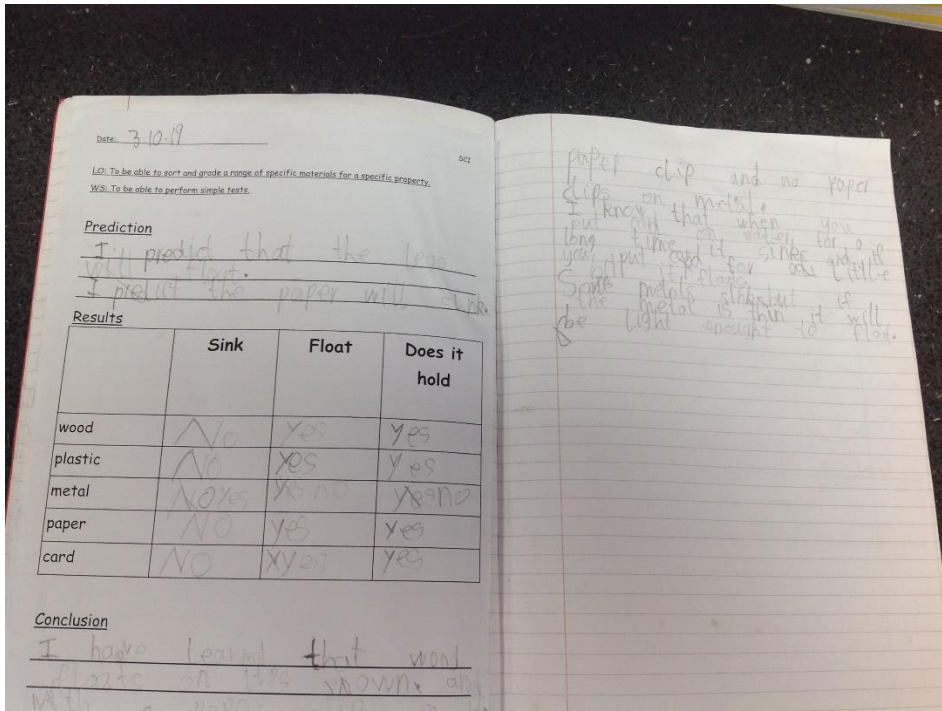 Date: 3.10.19
SCI
LO: To be able to sort and grade a range of specific materials for a specific property.
WS: To be able to perform simple tests.
Prediction
I predict that the lego
will float.
I predict the paper will sink.
Results
Sink Float Does it hold
wood No Yes yes
plastic No yes yes
metal No Yes Yes no yes no
paper NO yes yes
card NO yes yes
Conclusion
I have learnt that wood
floats on its own and
with a
paper clip and no paper
clips on metal.
I know that when you
put card on water for a
long time it sinks and if
you put card for a little
bit it floats.
Some sinks but if
the metal is thin it will
be light enought to float.